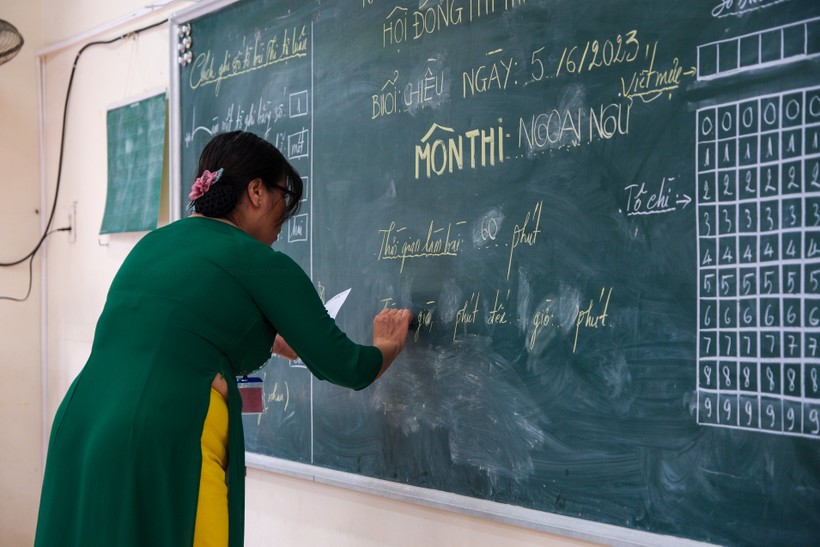 HỘI ĐỒNG THI
BUỔI: CHIỀU NGÀY: 5/6/2023
MÔN THI: NGOẠI NGỮ
Thời gian làm bài: 60 phút
giờ, phút đến giờ phút
Cách ghi số tờ bài thi tự luận
1
một
hai
Viết mực →
Tô chì →
0 0 0 0 0 0
1 1 1 1 1 1
2 2 2 2 2 2
3 3 3 3 3 3
4 4 4 4 4 4
5 5 5 5 5 5
6 6 6 6 6 6
7 7 7 7 7 7
8 8 8 8 8 8
9 9 9 9 9 9